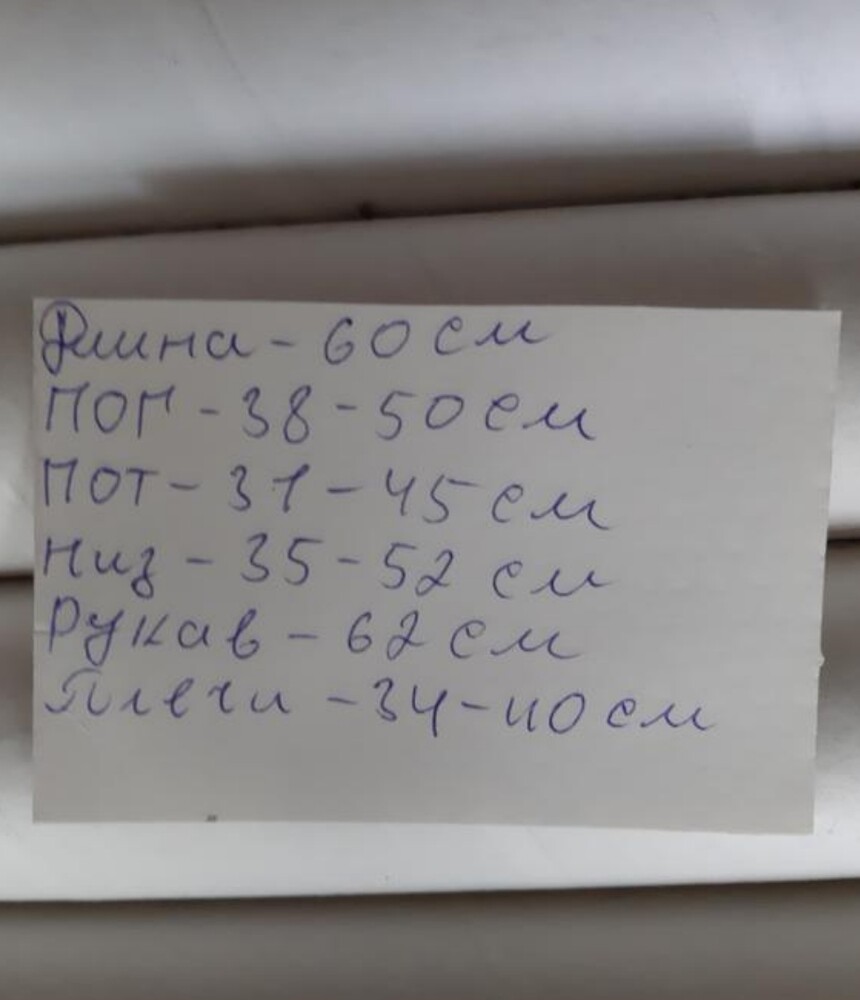 Длина - 60 см
ПОГ - 38 - 50 см
ПОТ - 31 - 45 см
Низ - 35 - 52 см
Рукав - 62 см
Плечи - 34 - 40 см